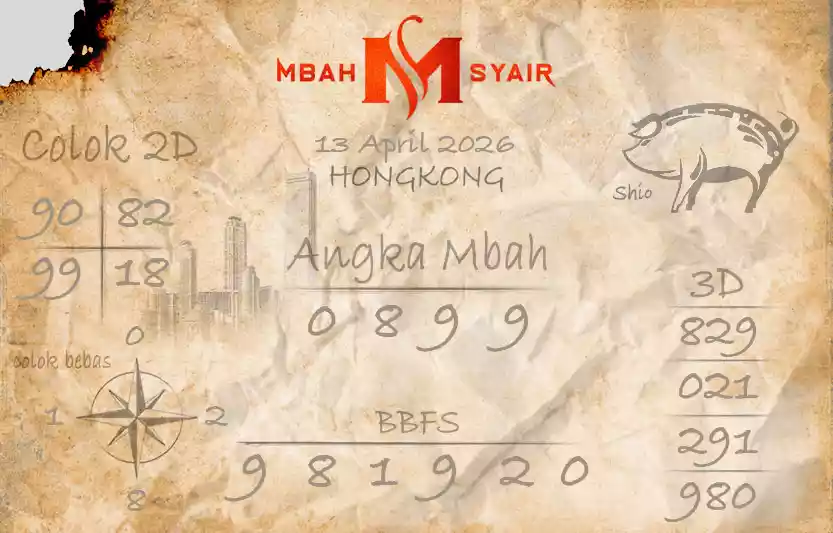 MBAH M SYAIR
13 April 2026
HONGKONG
Colok 2D
90 82
99 18
Shio
Angka Mbah
0 8 9 9
3D
829
021
291
980
colok bebas
0
1 2
8
BBFS
9 8 1 9 2 0